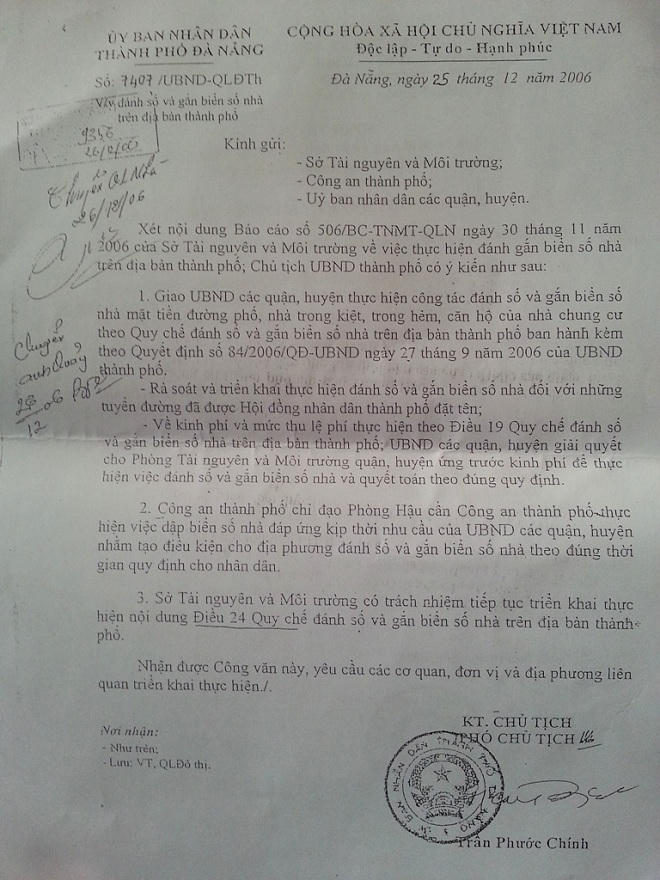 ỦY BAN NHÂN DÂN
THÀNH PHỐ ĐÀ NẴNG
Số: 7407/UBND-QLĐTh
V/v đánh số và gắn biển số nhà
trên địa bàn thành phố
CỘNG HÒA XÃ HỘI CHỦ NGHĨA VIỆT NAM
Độc lập - Tự do - Hạnh phúc
Đà Nẵng, ngày 25 tháng 12 năm 2006
9356
Chuyển QL Nhà
26/12/06
Chuyển
anh Quốy
26/12 06
Kính gửi:
- Sở Tài nguyên và Môi trường;
- Công an thành phố;
- Uỷ ban nhân dân các quận, huyện.
Xét nội dung Báo cáo số 506/BC-TNMT-QLN ngày 30 tháng 11 năm
2006 của Sở Tài nguyên và Môi trường về việc thực hiện đánh gắn biển số nhà
trên địa bàn thành phố; Chủ tịch UBND thành phố có ý kiến như sau:
1. Giao UBND các quận, huyện thực hiện công tác đánh số và gắn biển số
nhà mặt tiền đường phố, nhà trong kiệt, trong hẻm, căn hộ của nhà chung cư
theo Quy chế đánh số và gắn biển số nhà trên địa bàn thành phố ban hành kèm
theo Quyết định số 84/2006/QĐ-UBND ngày 27 tháng 9 năm 2006 của UBND
thành phố.
- Rà soát và triển khai thực hiện đánh số và gắn biển số nhà đối với những
tuyến đường đã được Hội đồng nhân dân thành phố đặt tên;
- Về kinh phí và mức thu lệ phí thực hiện theo Điều 19 Quy chế đánh số
và gắn biển số nhà trên địa bàn thành phố; UBND các quận, huyện giải quyết
cho Phòng Tài nguyên và Môi trường quận, huyện ứng trước kinh phí để thực
hiện việc đánh số và gắn biển số nhà và quyết toán theo đúng quy định.
2. Công an thành phố chỉ đạo Phòng Hậu cần Công an thành phố thực
hiện việc dập biển số nhà đáp ứng kịp thời nhu cầu của UBND các quận, huyện
nhằm tạo điều kiện cho địa phương đánh số và gắn biển số nhà theo đúng thời
gian quy định cho nhân dân.
3. Sở Tài nguyên và Môi trường có trách nhiệm tiếp tục triển khai thực
hiện nội dung Điều 24 Quy chế đánh số và gắn biển số nhà trên địa bàn thành
phố.
Nhận được Công văn này, yêu cầu các cơ quan, đơn vị và địa phương liên
quan triển khai thực hiện./.
Nơi nhận:
- Như trên;
- Lưu: VT, QLĐô thị.
KT. CHỦ TỊCH
PHÓ CHỦ TỊCH
ỦY BAN NHÂN DÂN THÀNH PHỐ ĐÀ NẴNG
Trần Phước Chính